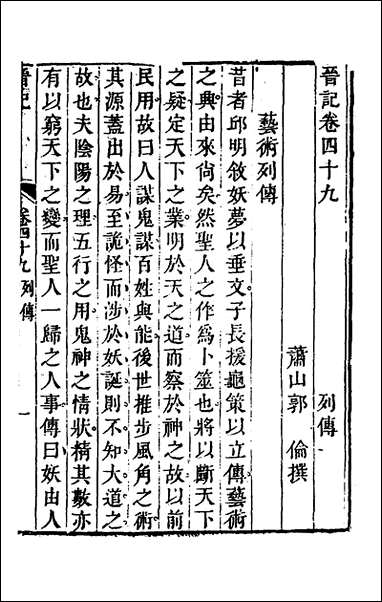 晉記卷四十九　列傳
蕭山郭　倫撰
藝術列傳
昔者邱明敘妖夢以垂文子長援龜策以立傳藝術
之興由來尙矣然聖人之作爲卜筮也將以斷天下
之疑定天下之業明於天之道而察於神之故以前
民用故曰人謀鬼謀百姓與能後世推步風角之術
其源蓋出於易至詭怪而涉於妖誕則不知大道之
故也夫陰陽之理五行之用鬼神之情狀精其數亦
有以窮天下之變而聖人一歸之人事傳曰妖由人
卷四十九列傳
一